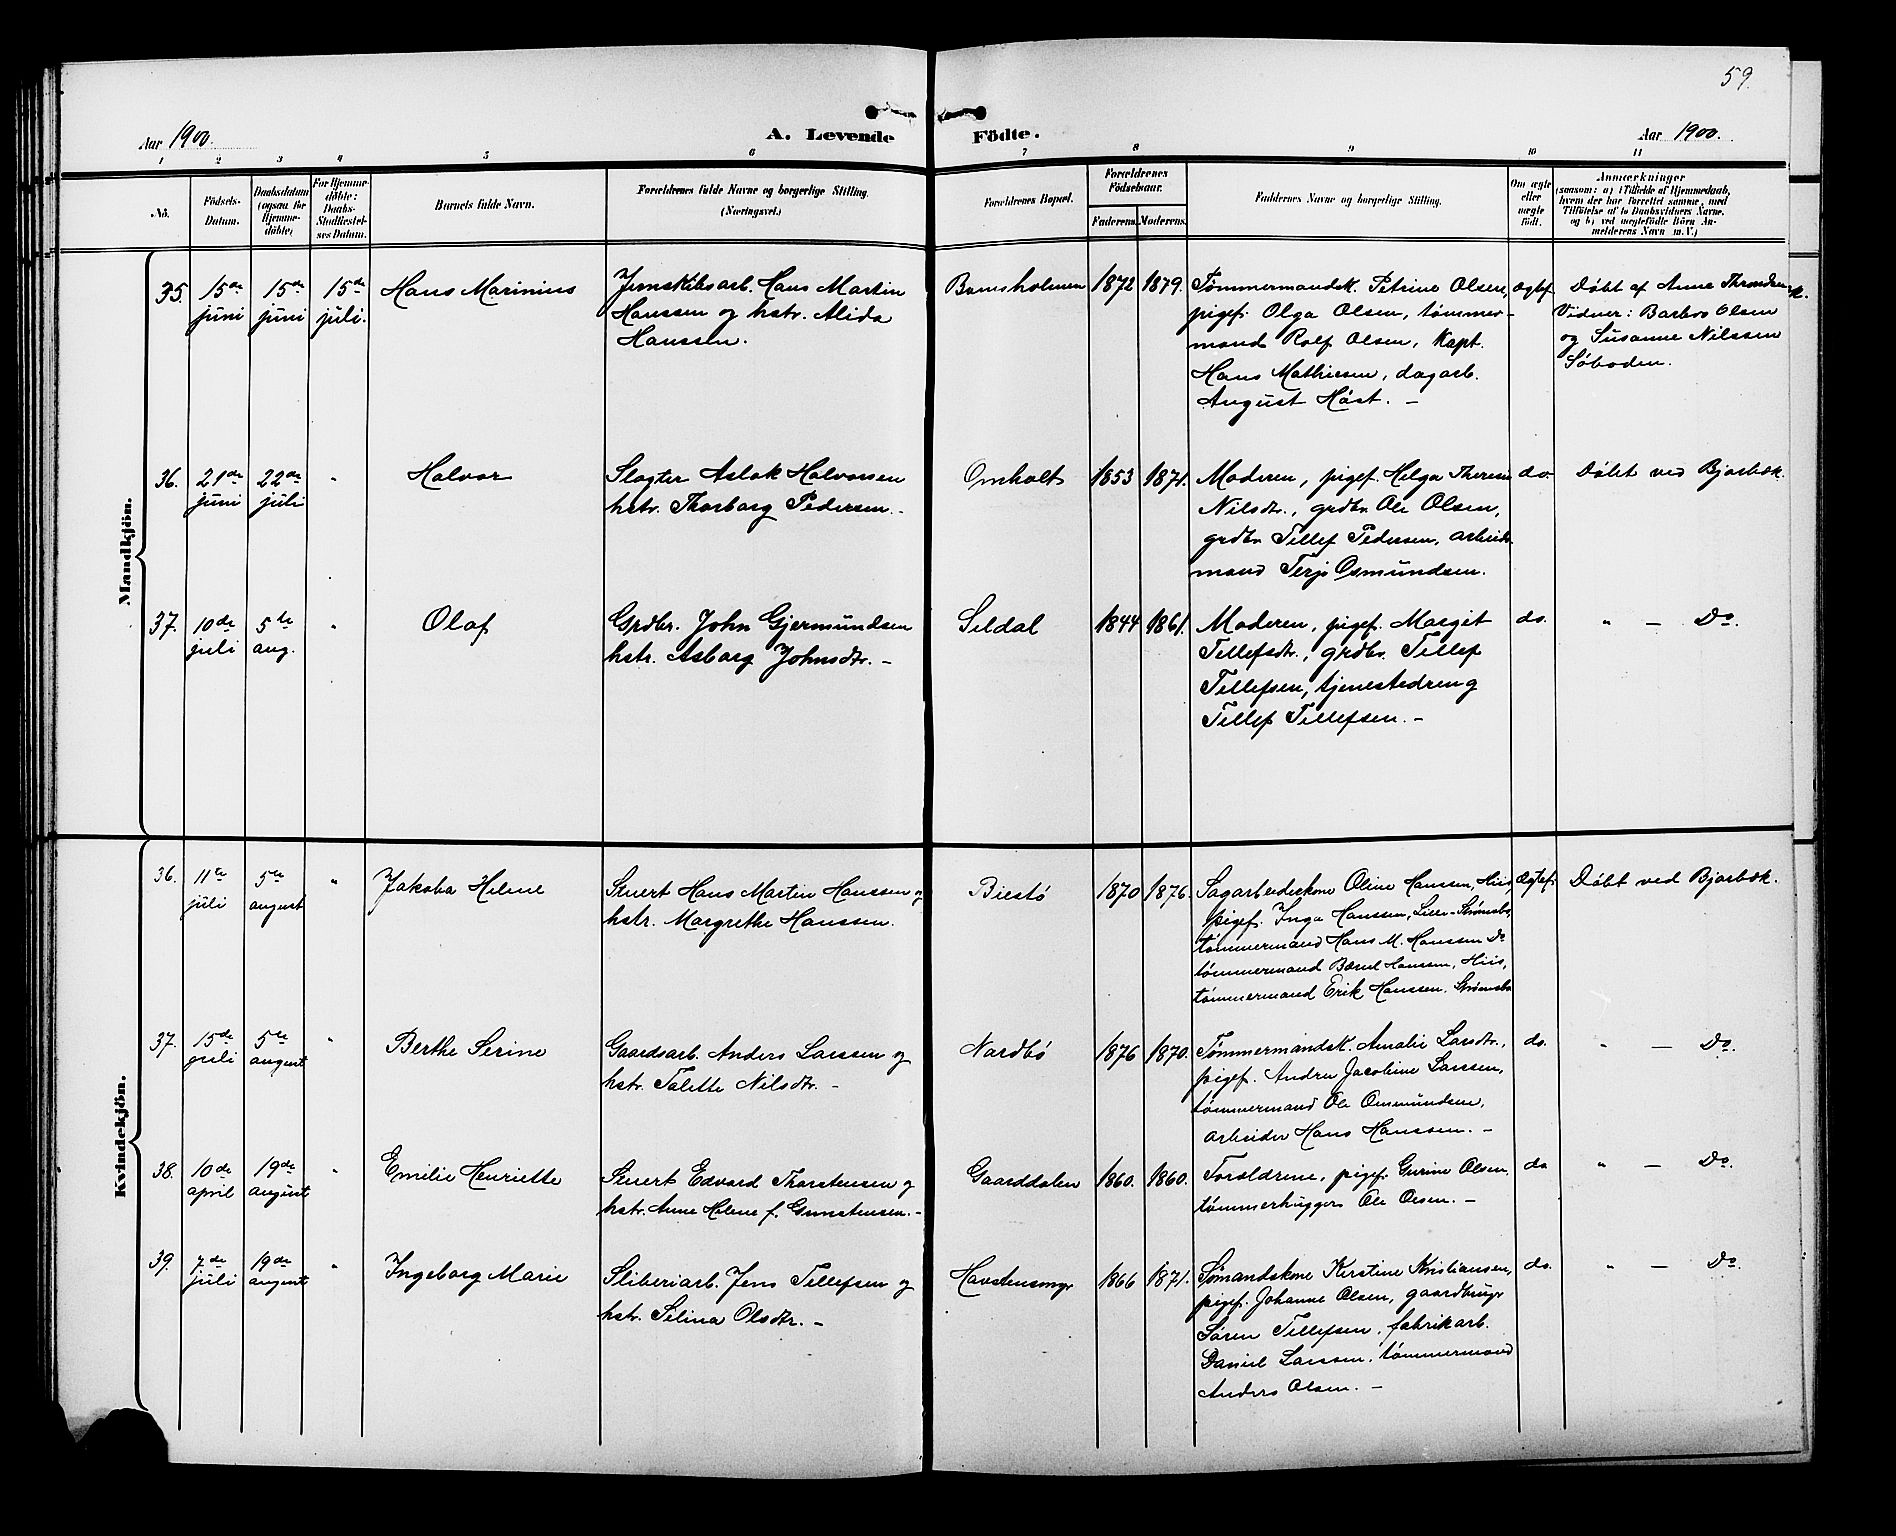 59.
Aar 1900.
A. Levende Födte.
Aar 1900.
1 2 3 4 5 6 7 8 9 10 11
No.
Födsels-
Datum.
Daabsdatum
(ogsaa for
Hjemme-
döbte)
For Hjemme-
döbte:
Daabs-
Stadfæstel-
ses Datum.
Barnets fulde Navn.
Forældrenes fulde Navne og borgerlige Stilling.
(Næringsvei.)
Forældrenes Bopæl.
Forældrenes
Födselsaar.
Faderens. Moderens.
Faddernes Navne og borgerlige Stilling.
Om ægte
eller
uægte
födt.
Anmærkninger
(saasom: a) i Tilfælde af Hjemmedaab,
hvem der har forrettet samme, med
Tilföielse af to Daabsvidners Navne.
og b) ved uægtefödte Börn An-
melderens Navn m. V.)
Mandkjön.
35.
15de
juni
15de
juni
15de
juli.
Hans Marinius
Jernskibsarb. Hans Martin
Hanssen og hstr. Alida
Hanssen.
Bamsholmen
1872
1879.
Tømmermandsk. Petrine Olsen,
pigef. Olga Olsen, tømmer-
mand Rolf Olsen, Kapt.
Hans Mathiesen, dagarb.
August Høst. —
ægtef.
Døbt af Anne Throndsen
Vidner: Barbro Olsen
og Susanne Nilssen
Søboden.
36.
21de
juni
22de
juli
"
Halvor
Slagter Aslak Halvorsen
hstr. Thorborg Pedersen. -
Omholt
1853
1871.
Moderen, pigef. Helga Theresie
Nilsdtr., grdbr. Ole Olsen,
grdbr. Tellef Pedersen, arbeids-
mand Terje Osmundsen.
do.
Døbt ved Bjorbæk.
37.
10de
juli
5te
aug.
"
Olaf
Grdbr. John Gjermundsen
hstr. Asborg Johnsdtr. -
Seldal
1844
1861.
Moderen, pigef. Margit
Tellefsdtr., grdbr. Tellef
Tellefsen, tjenestedreng
Tellef Tellefsen. -
do.
" — Do.
Kvindekjön.
36.
11te
juli
5te
august
"
Jakoba Helene
Stuert Hans Martin Hanssen og
hstr. Margrethe Hanssen.
Biestø
1870
1876.
Sagarbeiderkone Oline Hanssen, Hiis
pigef. Inga Hanssen, Lille-Strømsbo,
tømmermand Hans M. Hanssen Do
tømmermand Hanssen, Hiis,
tømmermand Erik Hanssen. Strømsbo
Ægtef.
Døbt ved Bjorbæk.
37.
15de
juli
5te
august
"
Berthe Serine
Gaardsarb. Anders Larssen og
hstr. Talette Nilsdtr. -
Nordbø
1876
1870.
Tømmermandsk. Amalie Larsdtr.,
pigef. Andrea Jacobine Larssen,
tømmermand Ole Ommundsen,
arbeider Hans Hanssen. -
do.
" — Do.
38.
10de
april
19de
august
"
Emilie Henriette
Stuert Edvard Thorstensen og
hstr. Anne Helene f. Gunstensen. -
Gaarddalen
1860.
1860.
Forældrene, pigef. Gurine Olsen,
tømmerhugger Ole Olsen. -
do
" — Do.
39.
7de
juli
19de
august
"
Ingeborg Marie
Sliberiarb. Jens Tellefsen og
hstr. Selina Olsdtr. -
Havstensmyr
1866
1871.
Sømandskone Kirstine Kristiansen,
pigef. Johanne Olsen, gaardbruger
Søren Tellefsen, fabrikarb.
Daniel Larssen, tømmermand
Anders Olsen. -
do.
" — Do.